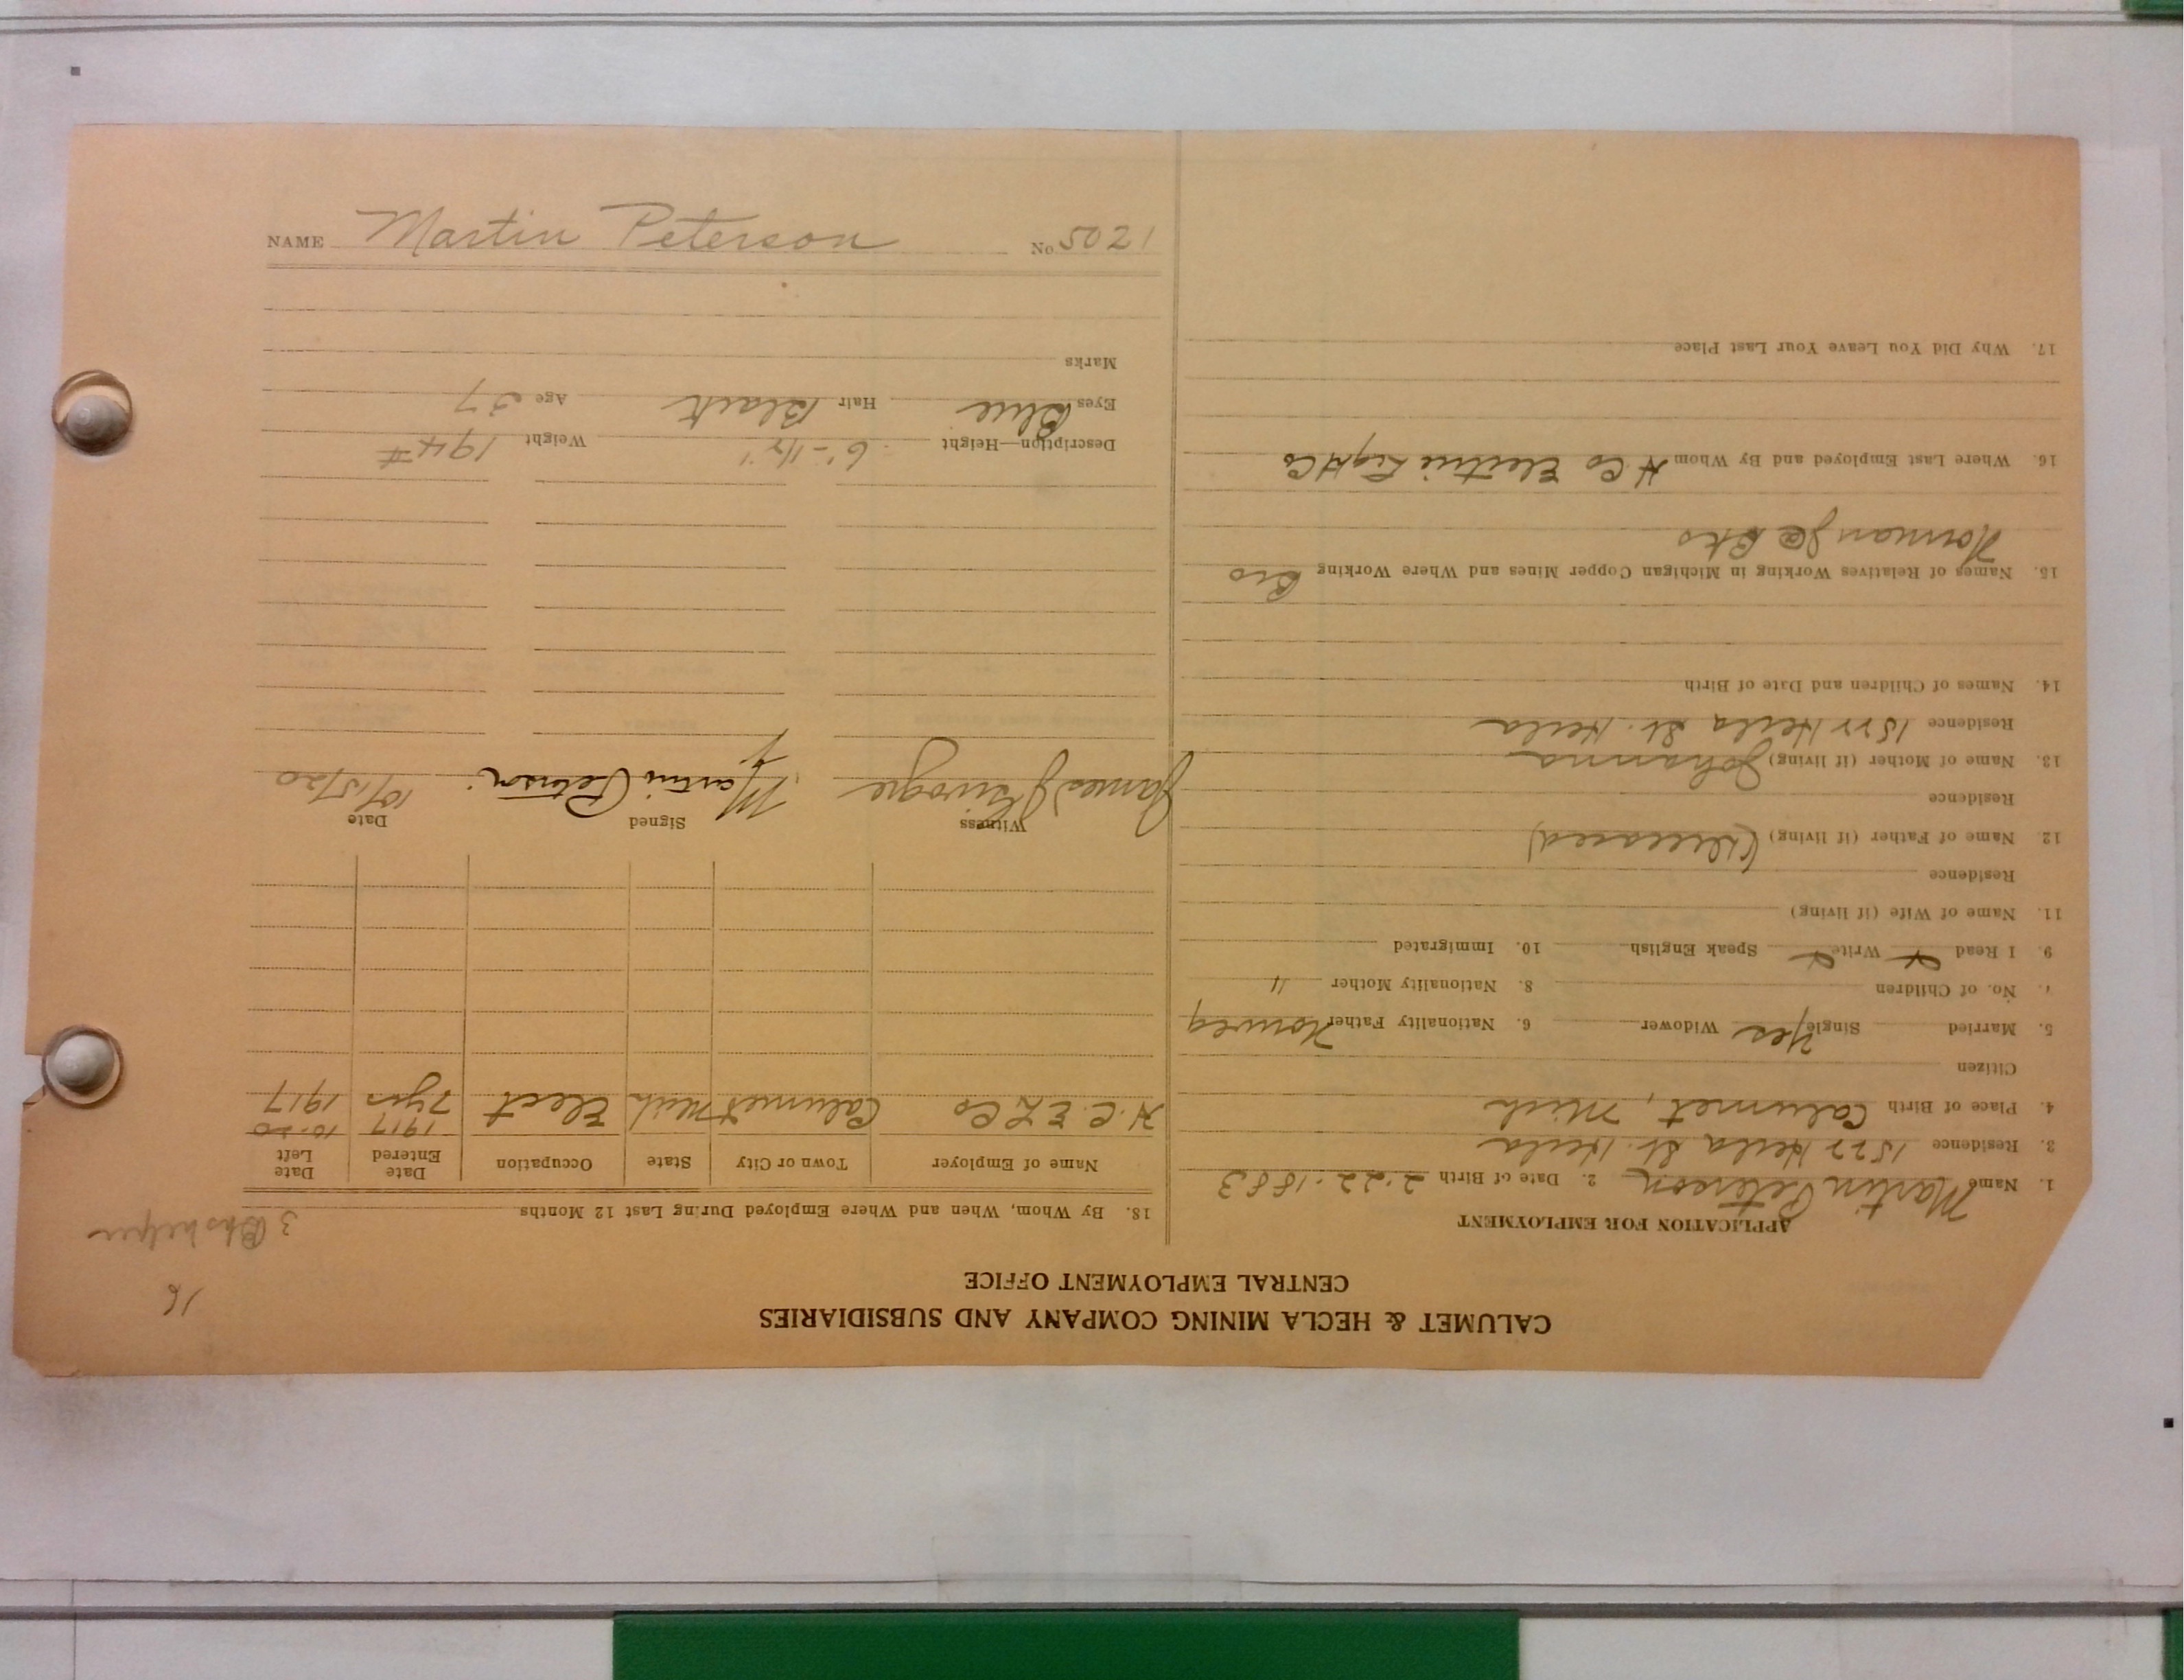 NAME Martin Peterson No. 5021
CALUMET & HECLA MINING COMPANY AND SUBSIDIARIES
CENTRAL EMPLOYMENT OFFICE
16
3 helper
APPLICATION FOR EMPLOYMENT
1. Name Martin Peterson 2. Date of Birth 2-22-1883
3. Residence 1522 Hecla St. Hecla
4. Place of Birth Calumet, Mich
Citizen
5. Married Single Yes Widower 6. Nationality Father Norweg
7. No. of Children 8. Nationality Mother "
9. I Read Write Speak English 10. Immigrated
11. Name of Wife (if living)
Residence
12. Name of Father (if living) (Deceased)
Residence
13. Name of Mother (if living) Johanna
Residence 1522 Hecla St. Hecla
14. Names of Children and Date of Birth
15. Names of Relatives Working in Michigan Copper Mines and Where Working Bro
Norman @
16. Where Last Employed and By Whom H Co Electric Light Co
17. Why Did You Leave Your Last Place
18. By Whom, When and Where Employed During Last 12 Months
Name of Employer Town or City State Occupation Date Entered Date Left
1917 10-20
H. C. E L Co Calumet Mich Elect 7 yrs 1917
Witness Signed Date
James Martin Peterson 10/15/20
Description—Height 6'-1½" Weight 194#
Eyes Blue Hair Black Age 37
Marks